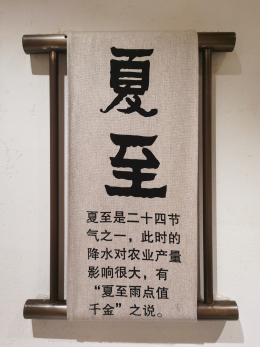 夏
至
夏至是二十四节
气之一，此时的
降水对农业产量
影响很大，有
“夏至雨点值
千金”之说。